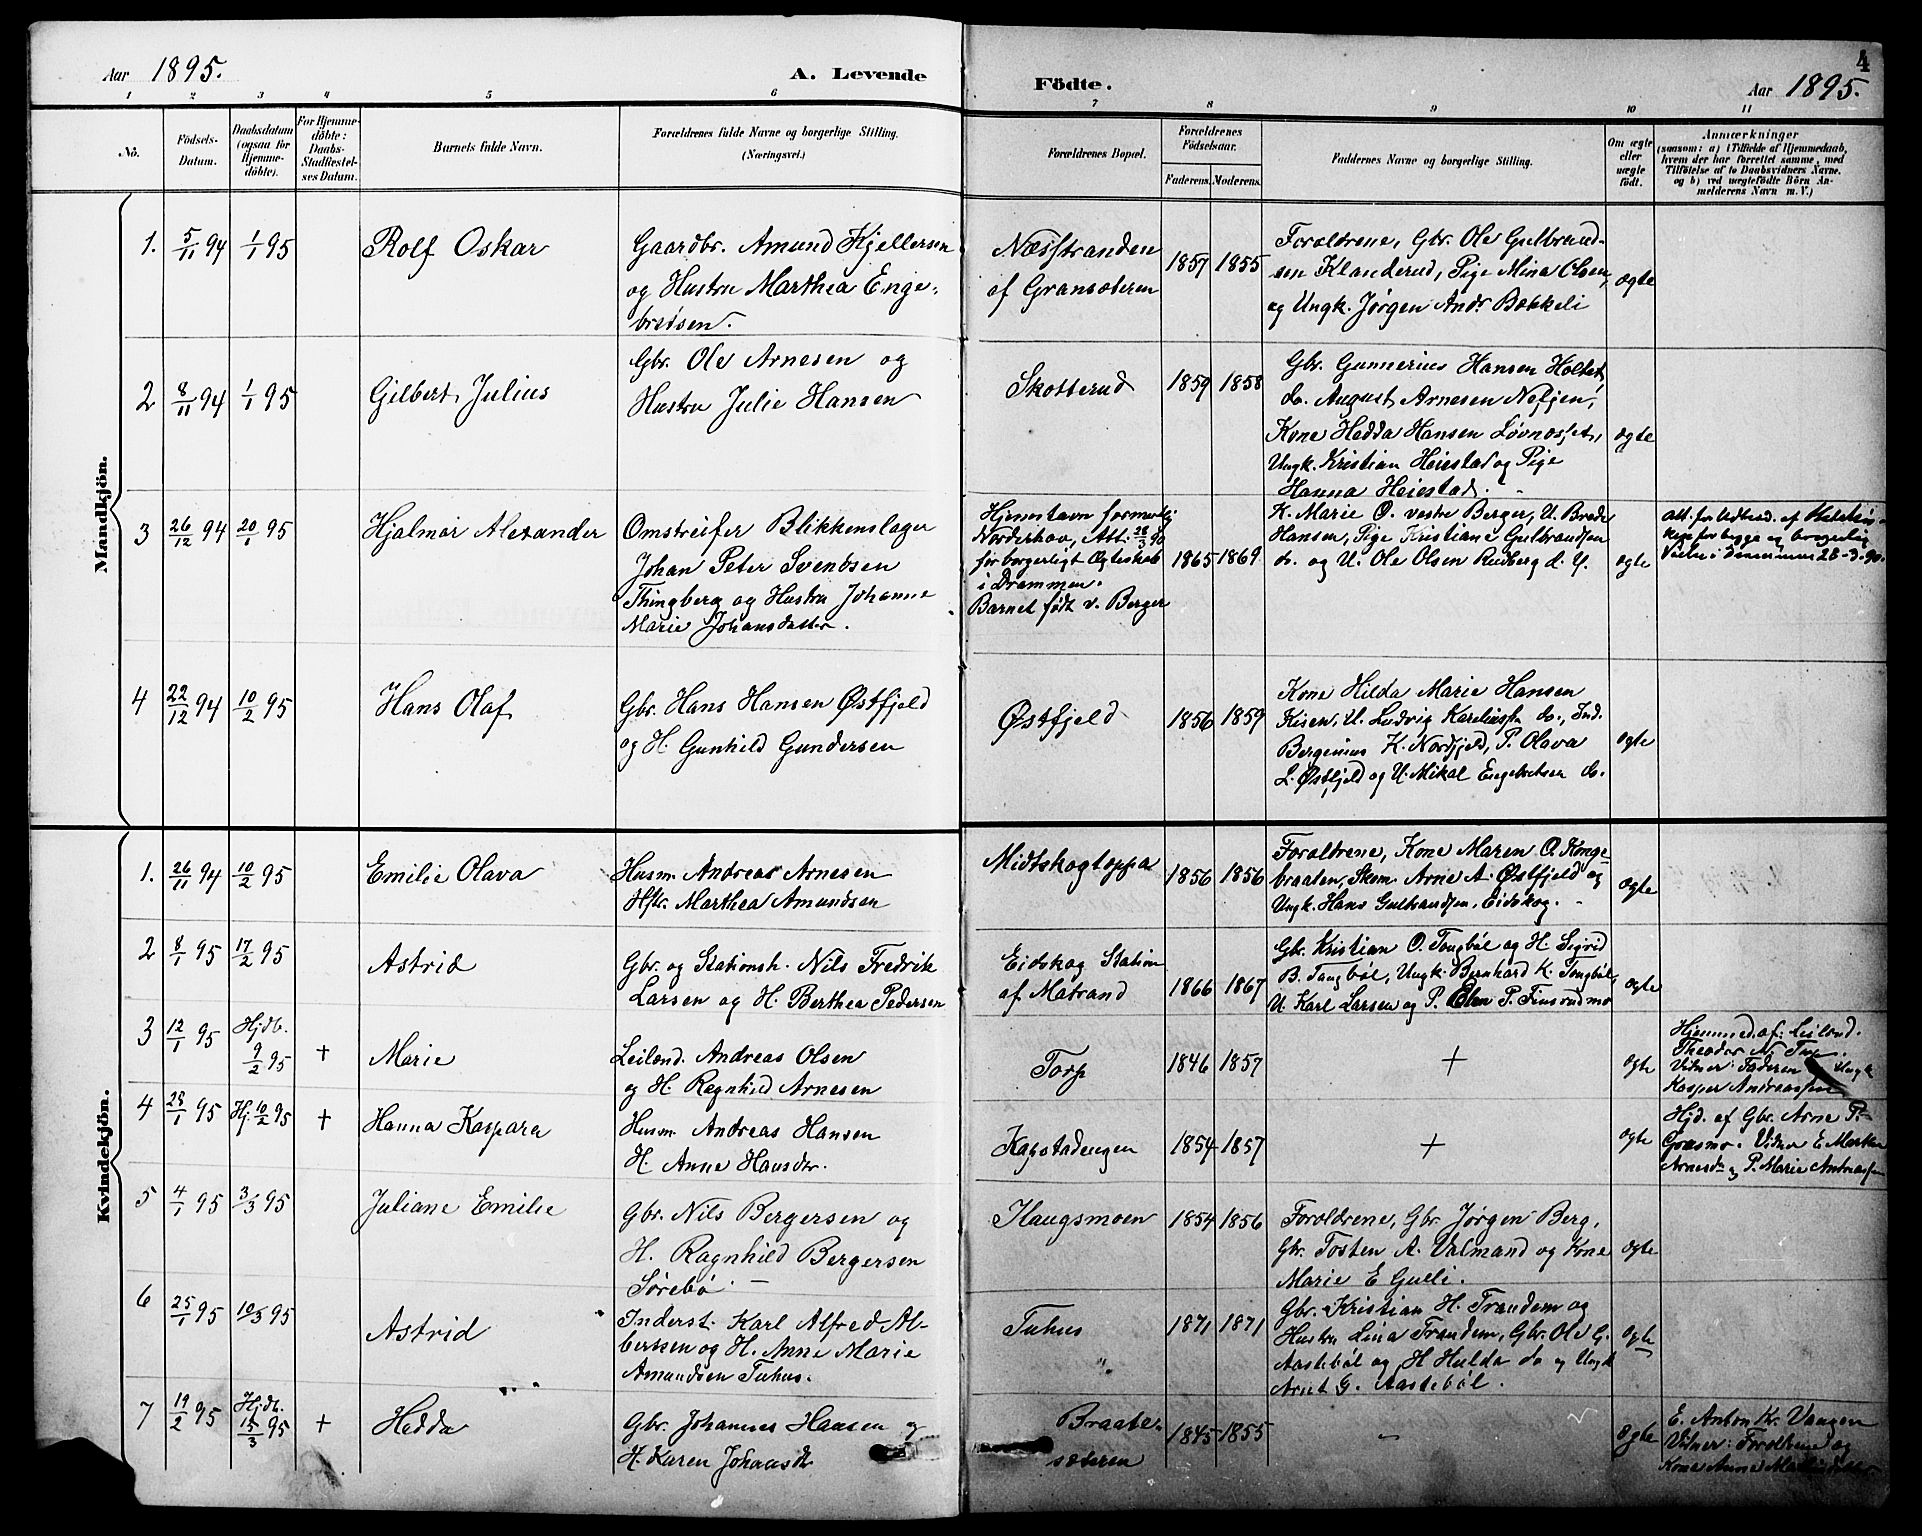 4
Aar 1895.
A. Levende
Födte.
Aar 1895.
1 2 3 4 5 6 7 8 9 10 11
No.
Födsels-
Datum.
Daabsdatum
(ogsaa for
Hjemme-
döbte).
For Hjemme-
döbte:
Daabs-
Stadfæstel-
ses Datum.
Barnets fulde Navn.
Forældrenes fulde Navne og borgerlige Stilling.
(Næringsvei.)
Forældrenes Bopæl.
Forældrenes
Födselsaar.
Faderens. Moderens.
Faddernes Navne og borgerlige Stilling.
Om ægte
eller
uægte
födt.
Anmærkninger
(saasom: a) i Tilfælde af Hjemmedaab,
hvem der har forrettet samme, med
Tilföielse af to Daabsvidners Navne.
og b) ved uægtefödte Börn An-
melderens Navn m. V.)
Mandkjön.
1. 5/11 94 1/1 95 Rolf Oskar
Gaardbr. Amund Kjellersen
og Hustru Marthea Enge-
bretsen.
Næsstranden
af Gransæteren
1857 1855
Forældrene, Gbr. Ole Gulbrand-
sen Klanderud, Pige Mina Olsen,
og Ungk. Jørgen Andr. Bækkeli
ægte
2 8/11 94 1/1 95 Gilbert Julius
Gbr. Ole Arnesen og
Hustru Julie Hansen
Skotterud
1859 1858
Gbr. Gunnerius Hansen Holtet,
do. August Arnesen
Kone Hedda Hansen Løvnæsset,
Ungk. Kristian Heiestad og Pige
Hanna Heiestad.
ægte
3 26/12 94 20/1 95 Hjalmar Alexander
Omstreifer Blikkenslager
Johan Peter Svendsen
Thingberg og Hustru Johanne
Marie Johansdatter.
Hjemstavn formentlig
Norderhov, Att. 28/3 90
for borgerligt Ægteskab
i Drammen.
Barnet født v. Berger
1865 1869
K. Marie O. vestre Berger, U. Brede
Hansen, Pige Kristiane Gulbrandsen
do. og U. Ole Olsen Rudberg d. y.
ægte
Att. for Udtræd. af
for begge og borgerlig
Vielse i Drammen 28-3-90.
4 22/12 94 10/2 95 Hans Olaf
Gbr. Hans Hansen Østfjeld
og H. Gunhild Gundersen
Østfjeld
1856 1859
Kone Hilda Marie Hansen
Kisen, U. Ludvig Kareliuss. do., Ind.
Bergenius K. Nordfjeld, P. Olava
L. Østfjeld og U. Mikal Engebretsen do.
ægte
Kvindekjön.
1. 26/11 94 10/2 95 Emilie Olava
Husm. Andreas Arnesen
Hstr. Marthea Amundsen
Midtskogtoppa
1856 1856
Forældrene, Kone Maren O. Konge-
braaten, Skom. Arne A. Østfjeld og
Ungk. Hans Gulbrandsen, Eidskog.
ægte
2 8/1 95 17/2 95 Astrid
Gbr. og Stationsh. Nils Fredrik
Larsen og H. Berthea Pedersen
Eidskog Station
af Matrand
1866 1867
Gbr. Kristian O. Tongbøl og H. Sigrid
B. Tangbøl, Ungk. Bernhard K. Tongbøl,
U. Karl Larsen og P. Elen P. Finsrudmo
ægte
3 12/1 95 Hjdb.
9/2 95 + Marie
Leilænd. Andreas Olsen
og H. Ragnhild Arnesen
Torp
1846 1857
+
ægte
Hjemmed. af: Leilænd.
Theodor
Vidner: Faderen Ungk
Kasper Andreassen
4 28/1 95 Hj. 10/2 95 + Hanna Kaspara
Husm. Andreas Hansen
H. Anne Hansdtr.
Kagstadengen
1854 1857
+
ægte
Hjd. af Gbr. Arne P.
Græsmo. Vidner E. Marthe
Arnesd. og P. Marie Andreassen
5 4/1 95 3/3 95 Juliane Emilie
Gbr. Nils Bergersen og
H. Ragnhild Bergersen
Sørebø.
Haugsmoen
1854 1856
Forældrene, Gbr. Jørgen Berg,
Gbr. Tosten A. Valmand og Kone
Marie E Gulli.
ægte
6 25/1 95 10/3 95 Astrid
Inderst. Karl Alfred Al-
bertsen og H. Anne Marie
Amundsen Tuhus.
Tuhus
"
1871 1871
Gbr. Kristian H. Trandem og
Hustru Lina Trandem, Gbr. Ole G.
Aastebøl og H Hulda do og Ungk
Arnt G. Aastebøl.
ægte
7 19/2 95 Hjdb.
15/3 95 + Hedda
Gbr. Johannes Hansen og
H. Karen Johansdtr
Braate-
sæteren
1845 1855
-
ægte
E. Anton Kr. Vangen
Vidner: Forældrene og
Kone Anne